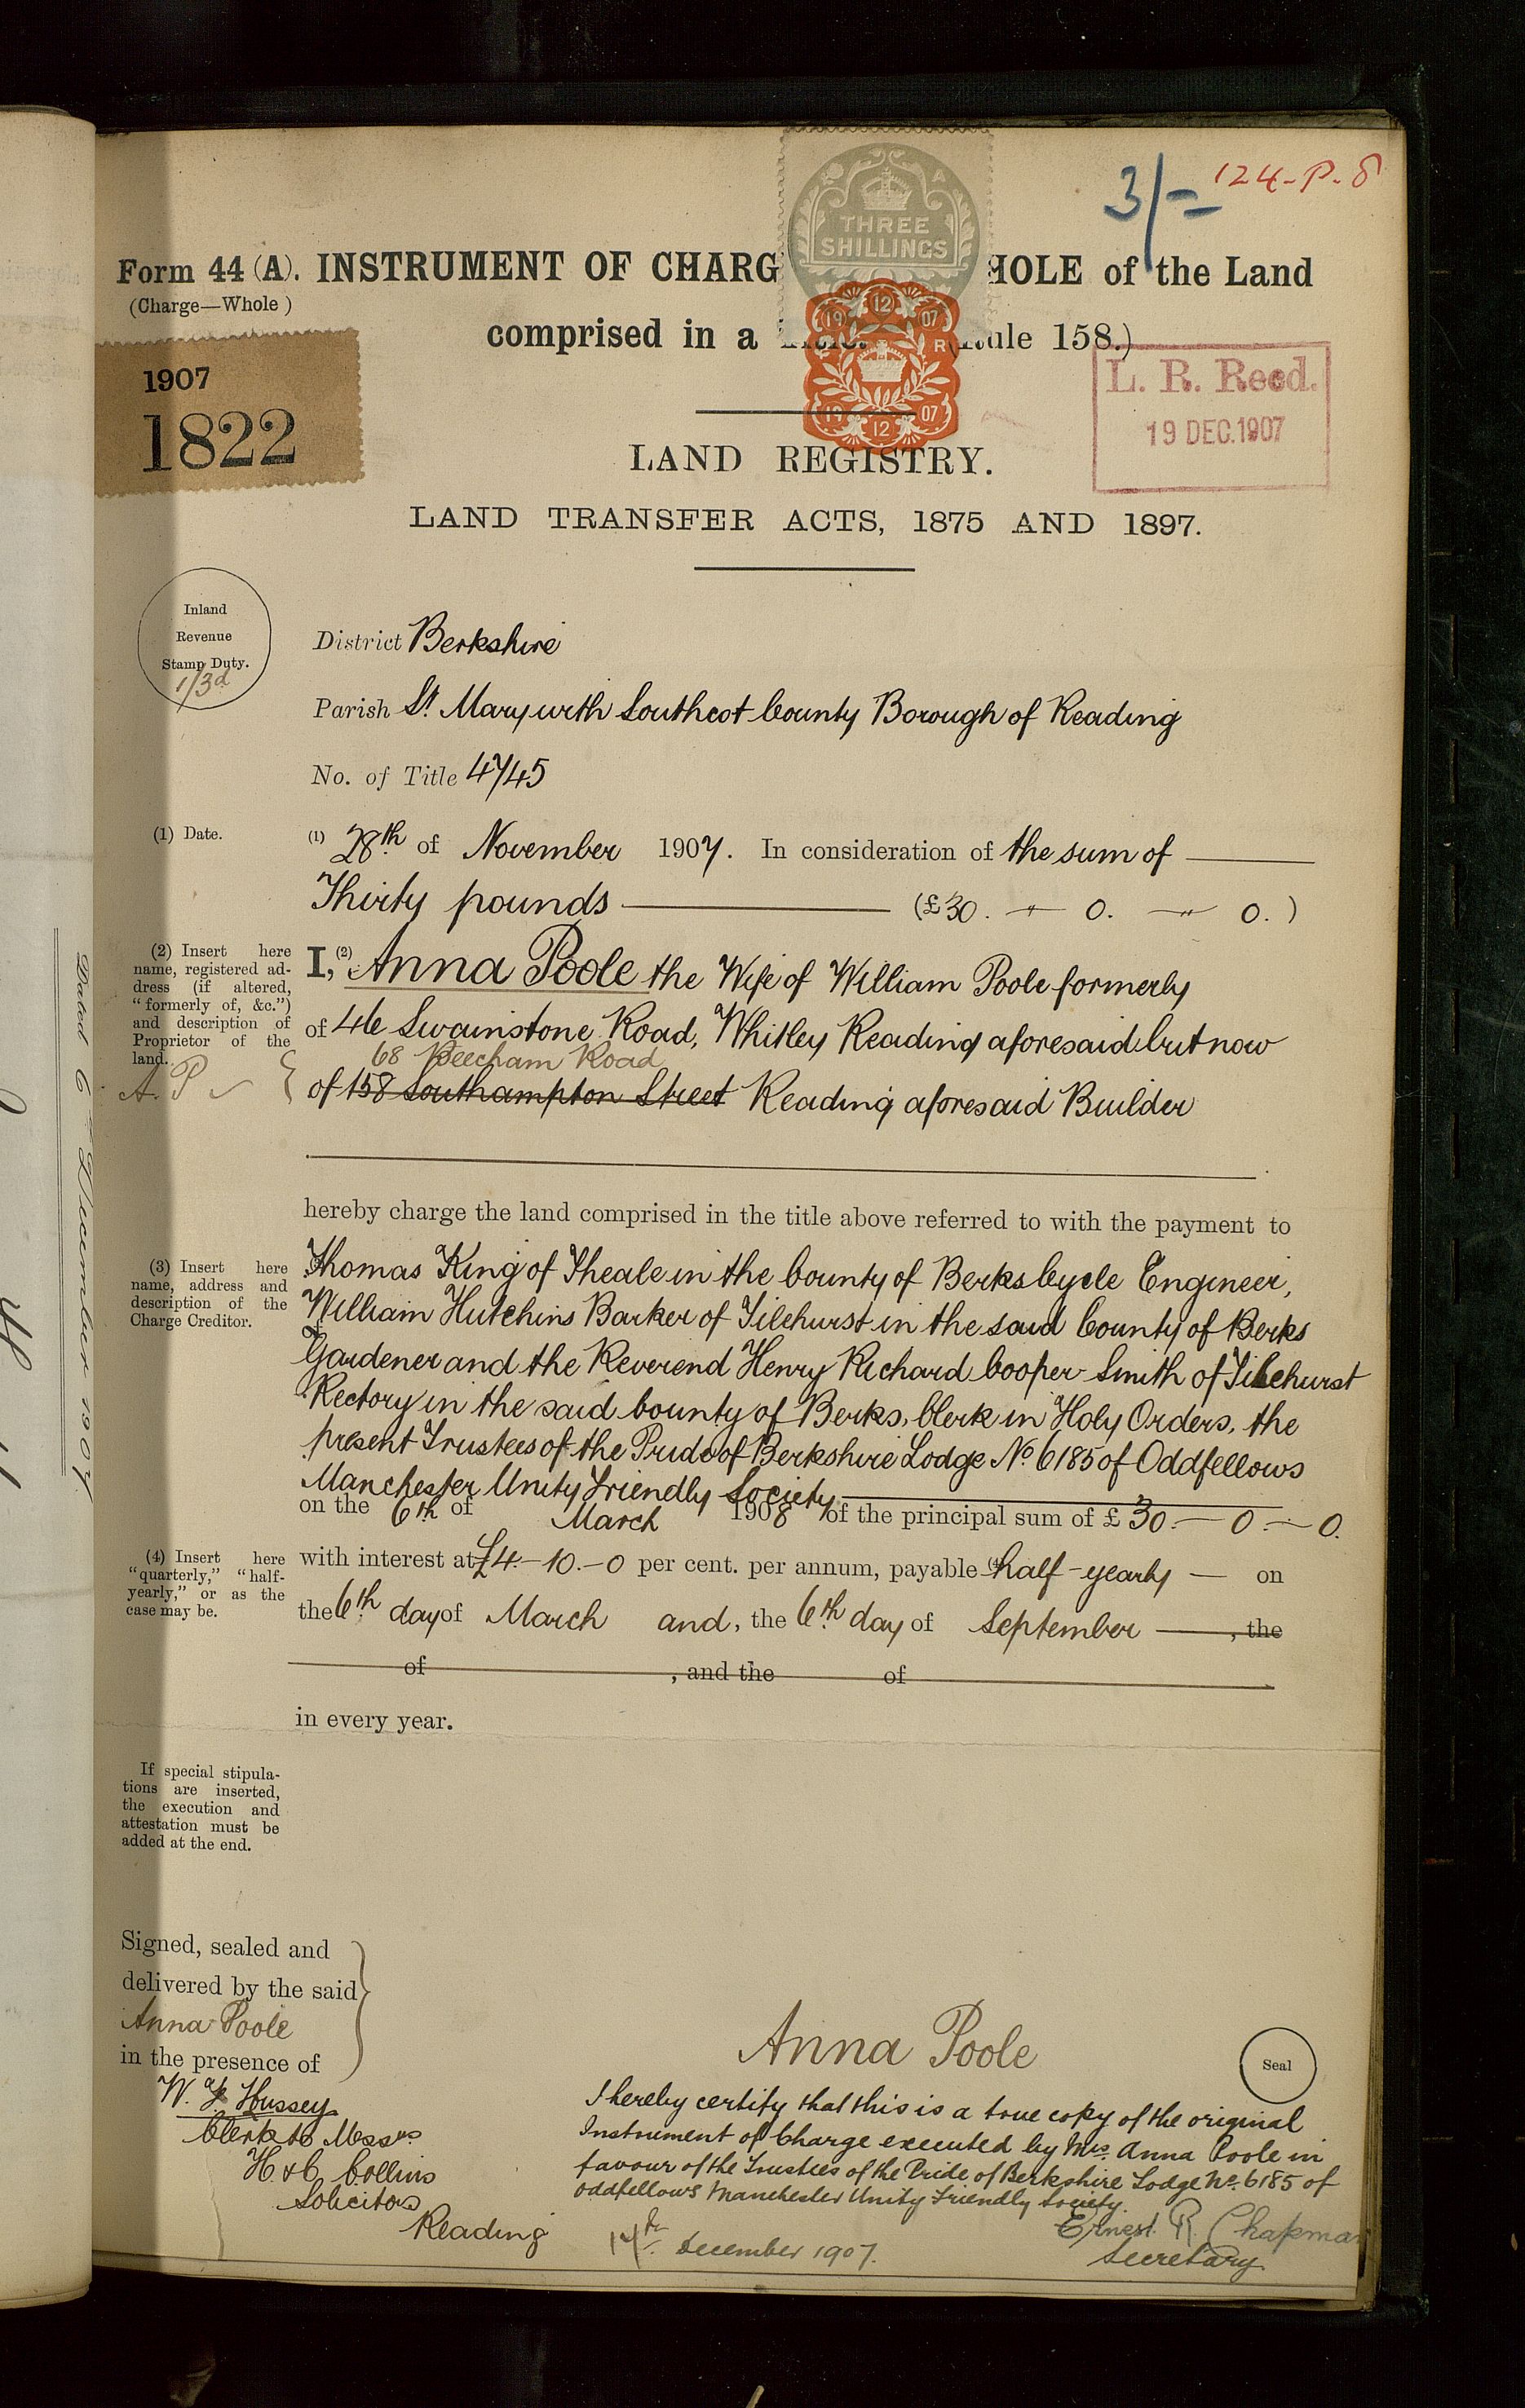 3/-
124-P.8
THREE
SHILLINGS
Form 44 (A). INSTRUMENT OF CHARG HOLE of the Land
(Charge—Whole)
comprised in a (Rule 158.)
19 12 07
R
19 12 07
L. R. Recd.
19 DEC. 1907
1907
1822
LAND REGISTRY.
LAND TRANSFER ACTS, 1875 AND 1897.
Inland
Revenue
Stamp Duty.
1/3d
District Berkshire
Parish St. Mary with Southcot County Borough of Reading
No. of Title 4745
(1) Date.
(1) 28th of November 1907. In consideration of the sum of
Thirty pounds (£30. " 0. " 0.)
(2) Insert here
name, registered ad-
dress (if altered,
"formerly of, &c.")
and description of
Proprietor of the
land.
A. P
I, (2) Anna Poole the Wife of William Poole formerly
of 46 Swainstone Road, Whitley Reading aforesaid but now
68 Beecham Road
of 158 Southampton Street Reading aforesaid Builder
hereby charge the land comprised in the title above referred to with the payment to
(3) Insert here
name, address and
description of the
Charge Creditor.
Thomas King of Theale in the County of Berks Cycle Engineer,
William Hutchins Barker of Tilehurst in the said County of Berks
Gardener and the Reverend Henry Richard Cooper-Smith of Tilehurst
Rectory in the said County of Berks, Clerk in Holy Orders, the
present Trustees of the Pride of Berkshire Lodge No. 6185 of Oddfellows
Manchester Unity Friendly Society
on the 6th of March 1908 of the principal sum of £30.—0.—0.
(4) Insert here
"quarterly," "half-
yearly," or as the
case may be.
with interest at £4.—10.—0 per cent. per annum, payable (4) half-yearly — on
the 6th day of March and, the 6th day of September —, the
of , and the of
in every year.
If special stipula-
tions are inserted,
the execution and
attestation must be
added at the end.
Signed, sealed and
delivered by the said
Anna Poole
in the presence of
W. F. Hussey
Clerk to Messrs
H. & C. Collins
Solicitors
Reading
Anna Poole
Seal
I hereby certify that this is a true copy of the original
Instrument of Charge executed by Mrs. Anna Poole in
favour of the Trustees of the Pride of Berkshire Lodge No. 6185 of
Oddfellows Manchester Unity Friendly Society.
Ernest R. Chapman
Secretary
17th December 1907.
Dated 6th December 1907